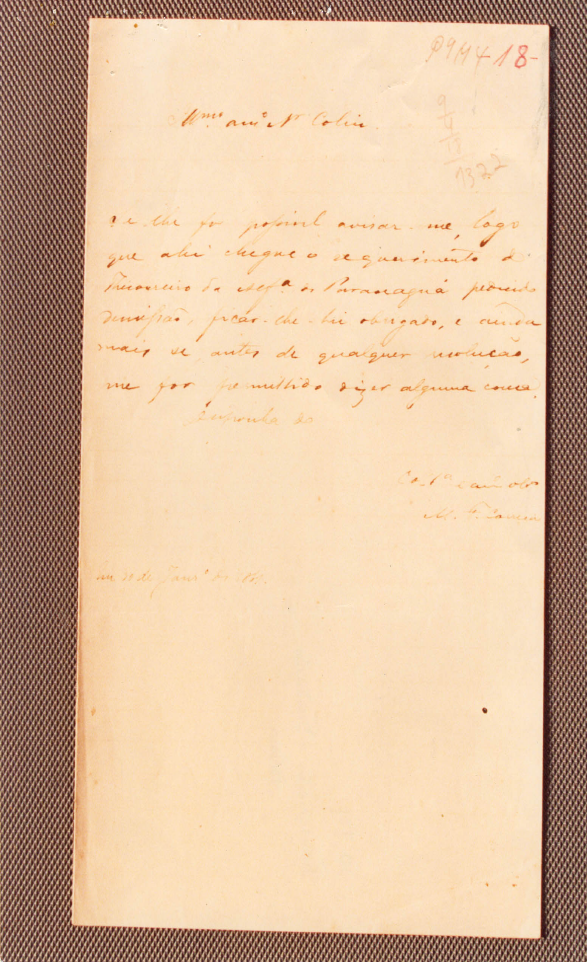 P9M4-18-
9
4
13
1322
Illmo amo Sr Colin.
Se lhe for possivel avisar-me, logo
que ahi chegue o requerimento do
Thesoureiro da Alfa de Paranaguá pedindo
demissão, ficar-lhe-hei obrigado, e ainda
mais se, antes de qualquer resolução,
me for permittido dizer alguma cousa.
do
M. F. Correia
de Janro de